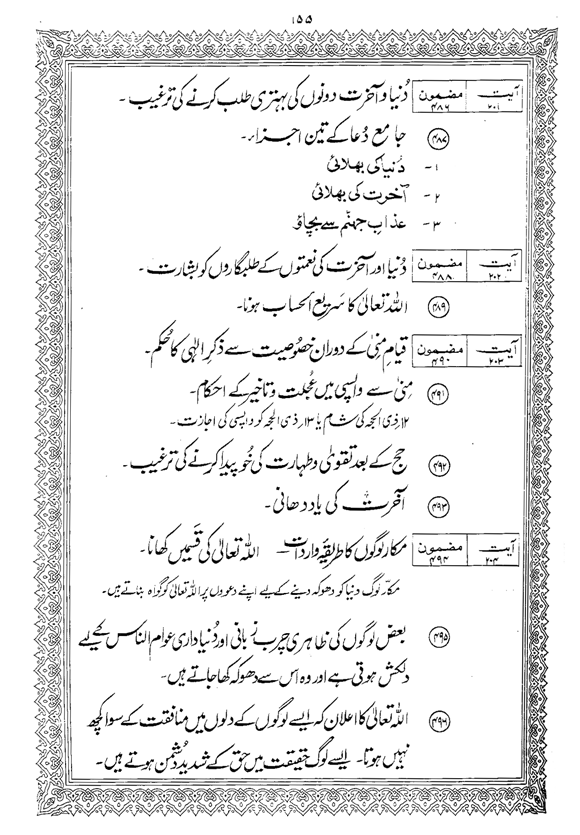 ۱۵۵
آیت ۲۰۱ مضمون ۴۸۶ دُنیا و آخرت دونوں کی بہتری طلب کرنے کی ترغیب۔
۴۸۷ جامع دُعا کے تین اجزاء۔
۱- دُنیا کی بھلائی
۲- آخرت کی بھلائی
۳- عذابِ جہنّم سے بچاؤ
آیت ۲۰۲ مضمون ۴۸۸ دُنیا اور آخرت کی نعمتوں کے طلبگاروں کو بشارت۔
۴۸۹ اللہ تعالیٰ کا سَریع الحساب ہونا۔
آیت ۲۰۳ مضمون ۴۹۰ قیامِ منیٰ کے دوران خصوصیت سے ذکرِ الٰہی کا حُکم۔
۴۹۱ مِنیٰ سے واپسی میں عُجلت و تاخیر کے احکام۔
۱۲ ذی الحجہ کی شام یا ۱۳ ذی الحجہ کو واپسی کی اجازت۔
۴۹۲ حج کے بعد تقویٰ و طہارت کی خُو پیدا کرنے کی ترغیب۔
۴۹۳ آخرت کی یاد دھانی۔
آیت ۲۰۴ مضمون ۴۹۴ مکار لوگوں کا طریقۂ واردات اللہ تعالیٰ کی قَسمیں کھانا۔
مکّار لوگ دنیا کو دھوکہ دینے کے لیے اپنے دعووں پر اللہ تعالیٰ کو گواہ بناتے ہیں۔
۴۹۵ بعض لوگوں کی ظاہری چرب زبانی اور دُنیاداری عوام الناس کے لیے
دلکش ہوتی ہے اور وہ اس سے دھوکہ کھا جاتے ہیں۔
۴۹۶ اللہ تعالیٰ کا اعلان کہ ایسے لوگوں کے دلوں میں منافقت کے سوا کچھ
نہیں ہوتا۔ ایسے لوگ حقیقت میں حق کے شدید دُشمن ہوتے ہیں۔